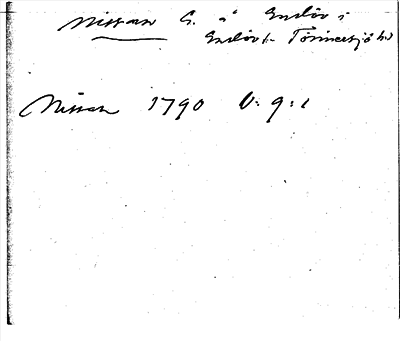 Nissan G. å Enslöv i
Enslövs Tönnersjö hd
Nissan 1790 V: 9: 1